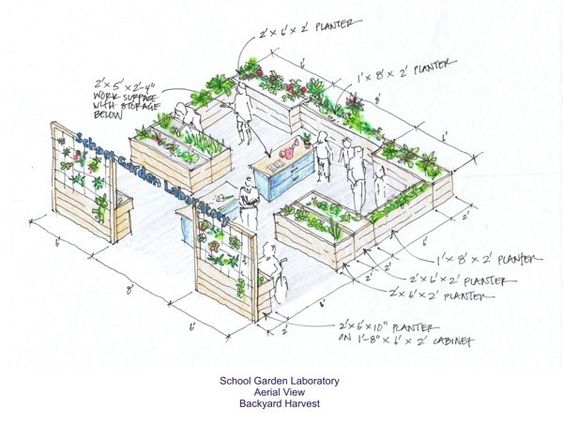 2' x 6' x 2' PLANTER
1' x 8' x 2' PLANTER
2' x 5' x 2'-4"
WORK SURFACE
WITH STORAGE
BELOW
6'
8'
1'
School Garden Laboratory
1' x 8' x 2' PLANTER
2' x 6' x 2' PLANTER
2' x 6' x 2' PLANTER
2' x 6' x 10" PLANTER
ON 1'-8" x 6' x 2' CABINET
6'
8'
6'
2'
2'
School Garden Laboratory
Aerial View
Backyard Harvest